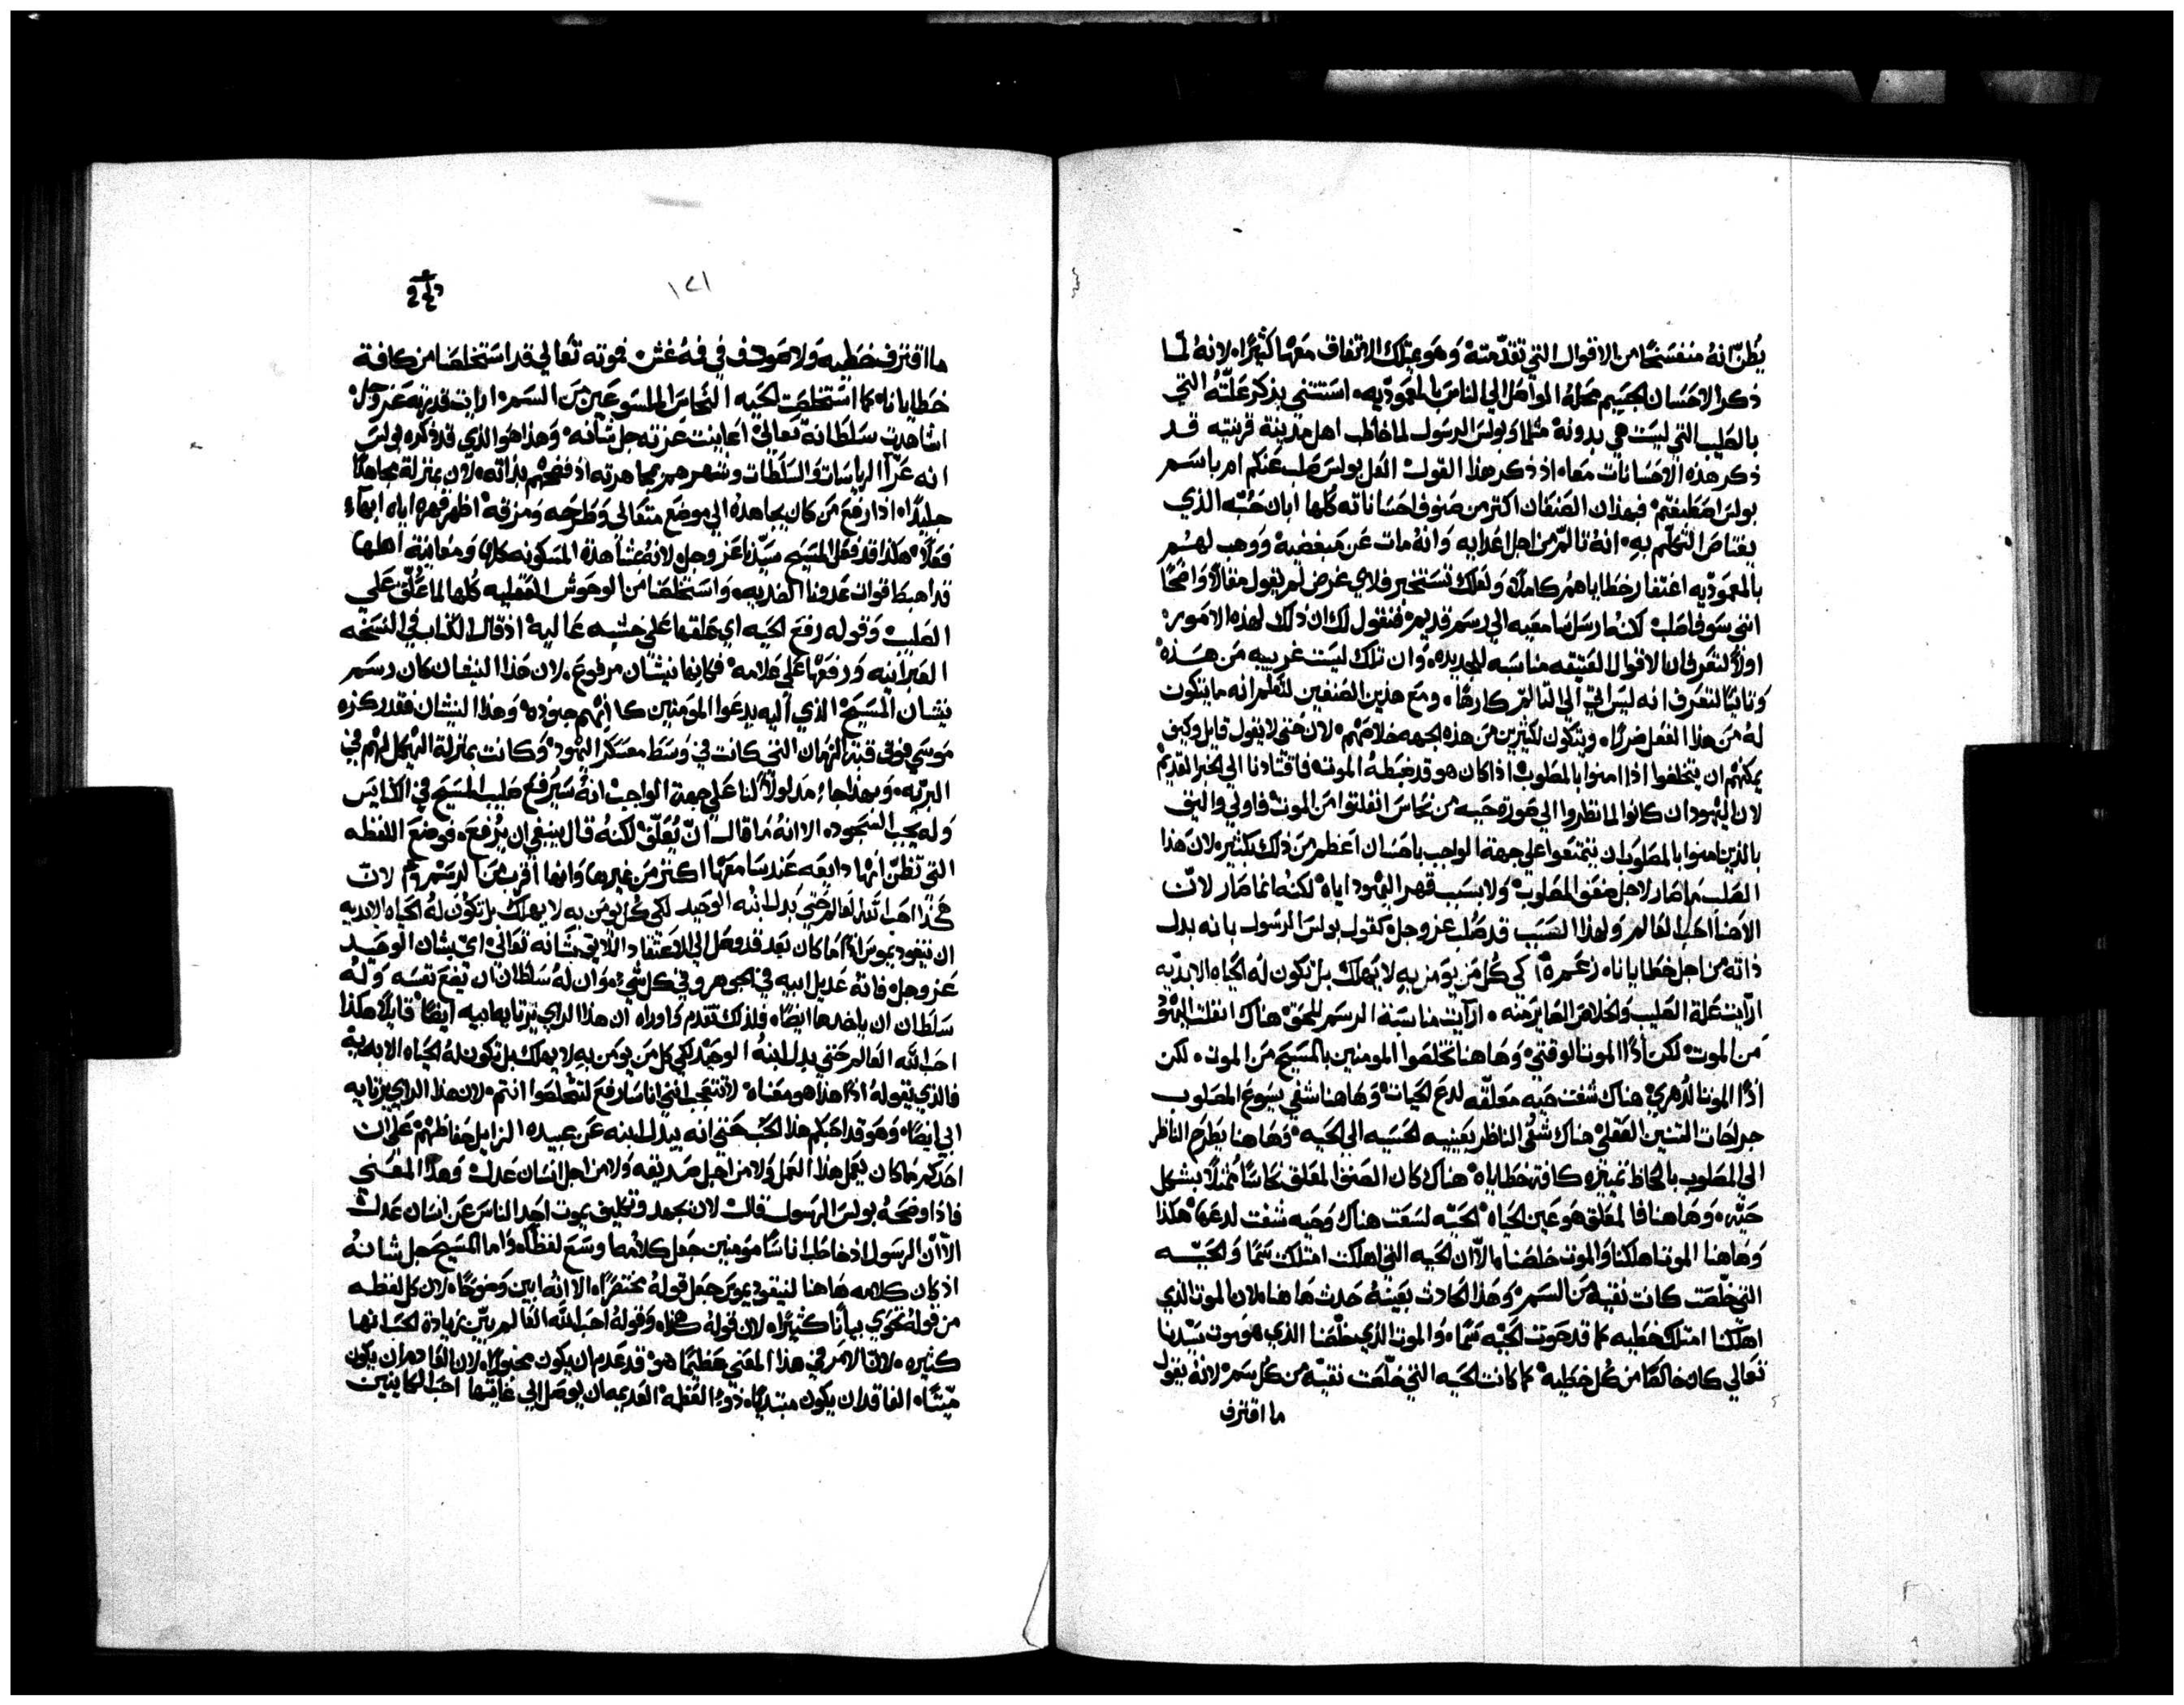 يظن انه منفسخا من الاقوال التي تقدمته وهو يمتلك الاتفاق معها كثيرا لانه لما
ذكر الاحسان الجسيم محله الواصل الي الناس بالمعموديه استثني بذكر علته التي
بالصليب التي ليست هي بدونه مثلما وبولس الرسول لما خاطب اهل مدينة قرنتيه قد
ذكر هذه الاحسانات معا اذ ذكر هذا القول العل بولس صلب عنكم ام باسم
بولس اصطبغتم فبهذان الصنفان اكثر من صنوف احساناته كلها ابان حبه الذي
يعتاص التكلم به انه تالم من اجل اعدايه وانه مات عن مبغضيه ووهب لهم
بالمعموديه اغتفار خطاياهم كاملا ولعلك تستخبر فلاي غرض لم يقول مقالا واضحا
انني سوف اصلب لكنه ارسل سامعيه الي رسم قديم فنقول لك ان ذلك لهذه الامور
اولا لتعرف ان الاقوال العتيقه مناسبه للجديده وان تلك ليست غريبه من هذه
وثانيا لتعرف انه ليس اتي الي التالم كارها ومع هذين الصنفين لتعلم انه ما يتكون
له من هذا الفعل ضررا ويتكون لكثيرين من هذه الجهه خلاصهم لان حتي لا يقول قايل وكيف
يمكنهم ان يتخلصوا اذا امنوا بالمصلوب اذا كان هو قد ضبطه الموت فاقتادنا الي الخبر القديم
لان اليهود ان كانوا لما نظروا الي صورة حيه من نحاس انفلتوا من الموت فاولي واليق
بالذين امنوا بالمصلوب ان يتمتعوا علي جهة الواجب باحسان اعظم من ذلك بكثير لان هذا
الصلب ما صار لاجل ضعف المصلوب ولا بسبب قهر اليهود اياه لكنه انما صار لان
الاهنا احب العالم ولهذا السبب قد صلب عز وجل كقول بولس الرسول بانه بدل
ذاته من اجل خطايانا زعم كي كل من يومن به لا يهلك بل تكون له الحياه الابديه
ارايت علة الصليب والخلاص الصاير منه ارايت مناسبة الرسم للحق هناك انفلت اليهود
من الموت لكن اذا الموت الوقتي وهاهنا تخلصوا المومنين بالمسيح من الموت لكن
اذا الموت الدهري هناك شفت حيه معلقه لدع الحيات وهاهنا شفي يسوع المصلوب
جراحات التنين العقلي هناك شفي الناظر بعينيه الحسيه الي الحيه وهاهنا يطرح الناظر
الي المصلوب بالحاظ تمييزه كافة خطاياه هناك كان الصنف المعلق نحاسا ممثلا بشكل
حيه وهاهنا فالمعلق هو عين الحياه الحيه لسعت هناك وحيه شفت لدعها هكذا
وهاهنا الموت اهلكنا والموت خلصنا الا ان الحيه التي اهلكت امتلكت سما والحيه
التي خلصت كانت نقيه من السم وهذا الحادث بعينه حدث هاهنا لان الموت الذي
اهلكنا امتلك خطيه كما قد حوت الحيه سما والموت الذي خلصنا الذي هو موت سيدنا
تعالي كان خالصا من كل خطيه كما كانت الحيه التي خلصت نقيه من كل سم لانه يقول
ما اقترف
١٢١
ما اقترف خطيه ولا صودف في فمه غش فموته تعالي قد استخلصنا من كافة
خطايانا كما استخلصت الحيه النحاس الملسوعين من السم ارايت قدرته عز وجل
اشاهدت سلطانه تعالي اعاينت عزته جل شانه وهذا هو الذي قد ذكره بولس
انه عرا الرياسات والسلطات وشهرهم مجاهرته اذ فضحهم بذاته لان بمنزلة مجاهدا
جليدا اذا رفع من كان يجاهده الي موضع متعالي وطرحه ومزقه اظهر قهره اياه ابهاء
فعلا هكذا قد فعل المسيح سيدنا عز وجل لانه بمشاهدة المسكونه كلها ومعاينة اهلها
قد اهبط قوات عدونا الضديه واستخلصنا من الوحوش العقليه كلها لما علق علي
الصليب وقوله رفع الحيه اي علقها علي خشبه عاليه اذ قال الكتاب في النسخه
العبرانيه ورفعها علي علامه فكانها نيشان مرفوع لان هذا الثعبان كان رسم
نيشان المسيح الذي اليه يدعوا المومنين كانهم جنوده وهذا النيشان فقد ركزه
موسي فوق قبة الزمان التي كانت في وسط معسكر اليهود وكانت بمنزلة الهيكل لهم في
البريه وبهذا جاء مدلولا لنا علي جهة الواجب انه سيرفع صليب المسيح في الكنايس
وله يجب السجود الا انه ما قال ان يعلق لكنه قال ينبغي ان يرفع فوضع اللفظه
التي تظن انها دايعه عند سامعها اكثر من غيرها وانها اقرب من الرسم لان
هكذا احب الله العالم حتي بدل ابنه الوحيد لكي كل يومن به لا يهلك بل تكون له الحياه الابديه
ان نيقوديموس اذا ما كان بعد قد وصل الي الاعتقاد اللايق بشانه تعالي اي بشان الوحيد
عز وجل فانه عديل ابيه في الجوهر وفي كل شي وان له سلطان ان يضع نفسه وله
سلطان ان ياخدها ايضا فلذلك تقدم فاوراه ان هذا الراي يرتايه ابيه ايضا قايلا هكذا
احب الله العالم حتي بدل ابنه الوحيد لكي كل من يومن به لا يهلك بل تكون له الحياه الابديه
فالذي يقوله اذا هذا هو معناه لا تتعجب انني انا سارفع لتخلصوا انتم لان هذا الراي يرتايه
ابي ايضا وهو قد احبكم هذا الحب حتي انه يبدل ابنه عن عبيده الزايل حفاظهم علي ان
احدكم ما كان يعمل هذا العمل ولا من اجل صديقه ولا من اجل انسان عدل وهذا المعني
فاذا وضحه بولس الرسول قال لان بجهد وتكليف يموت احد الناس عن انسان عدل
الا ان الرسول اذ خاطب اناسا مومنين جعل كلامه اوسع لفظا واما المسيح جل شانه
اذ كان كلامه هاهنا لنيقوديموس جعل قوله مختصرا الا انه ابين وضوحا لان كل لفظه
من قوله تحوي بيانا كثيرا لان قوله هكذا وقوله احب الله العالم يبين زيادة الحب انها
كثيره لان الامر في هذا المعني عظيما هو قد عدم ان يكون محتويا لان العادم ان يكون
ميتا الفاقد ان يكون مبتديا ذو العظمه العديمه ان يوصل الي غايتها احب الكاينين